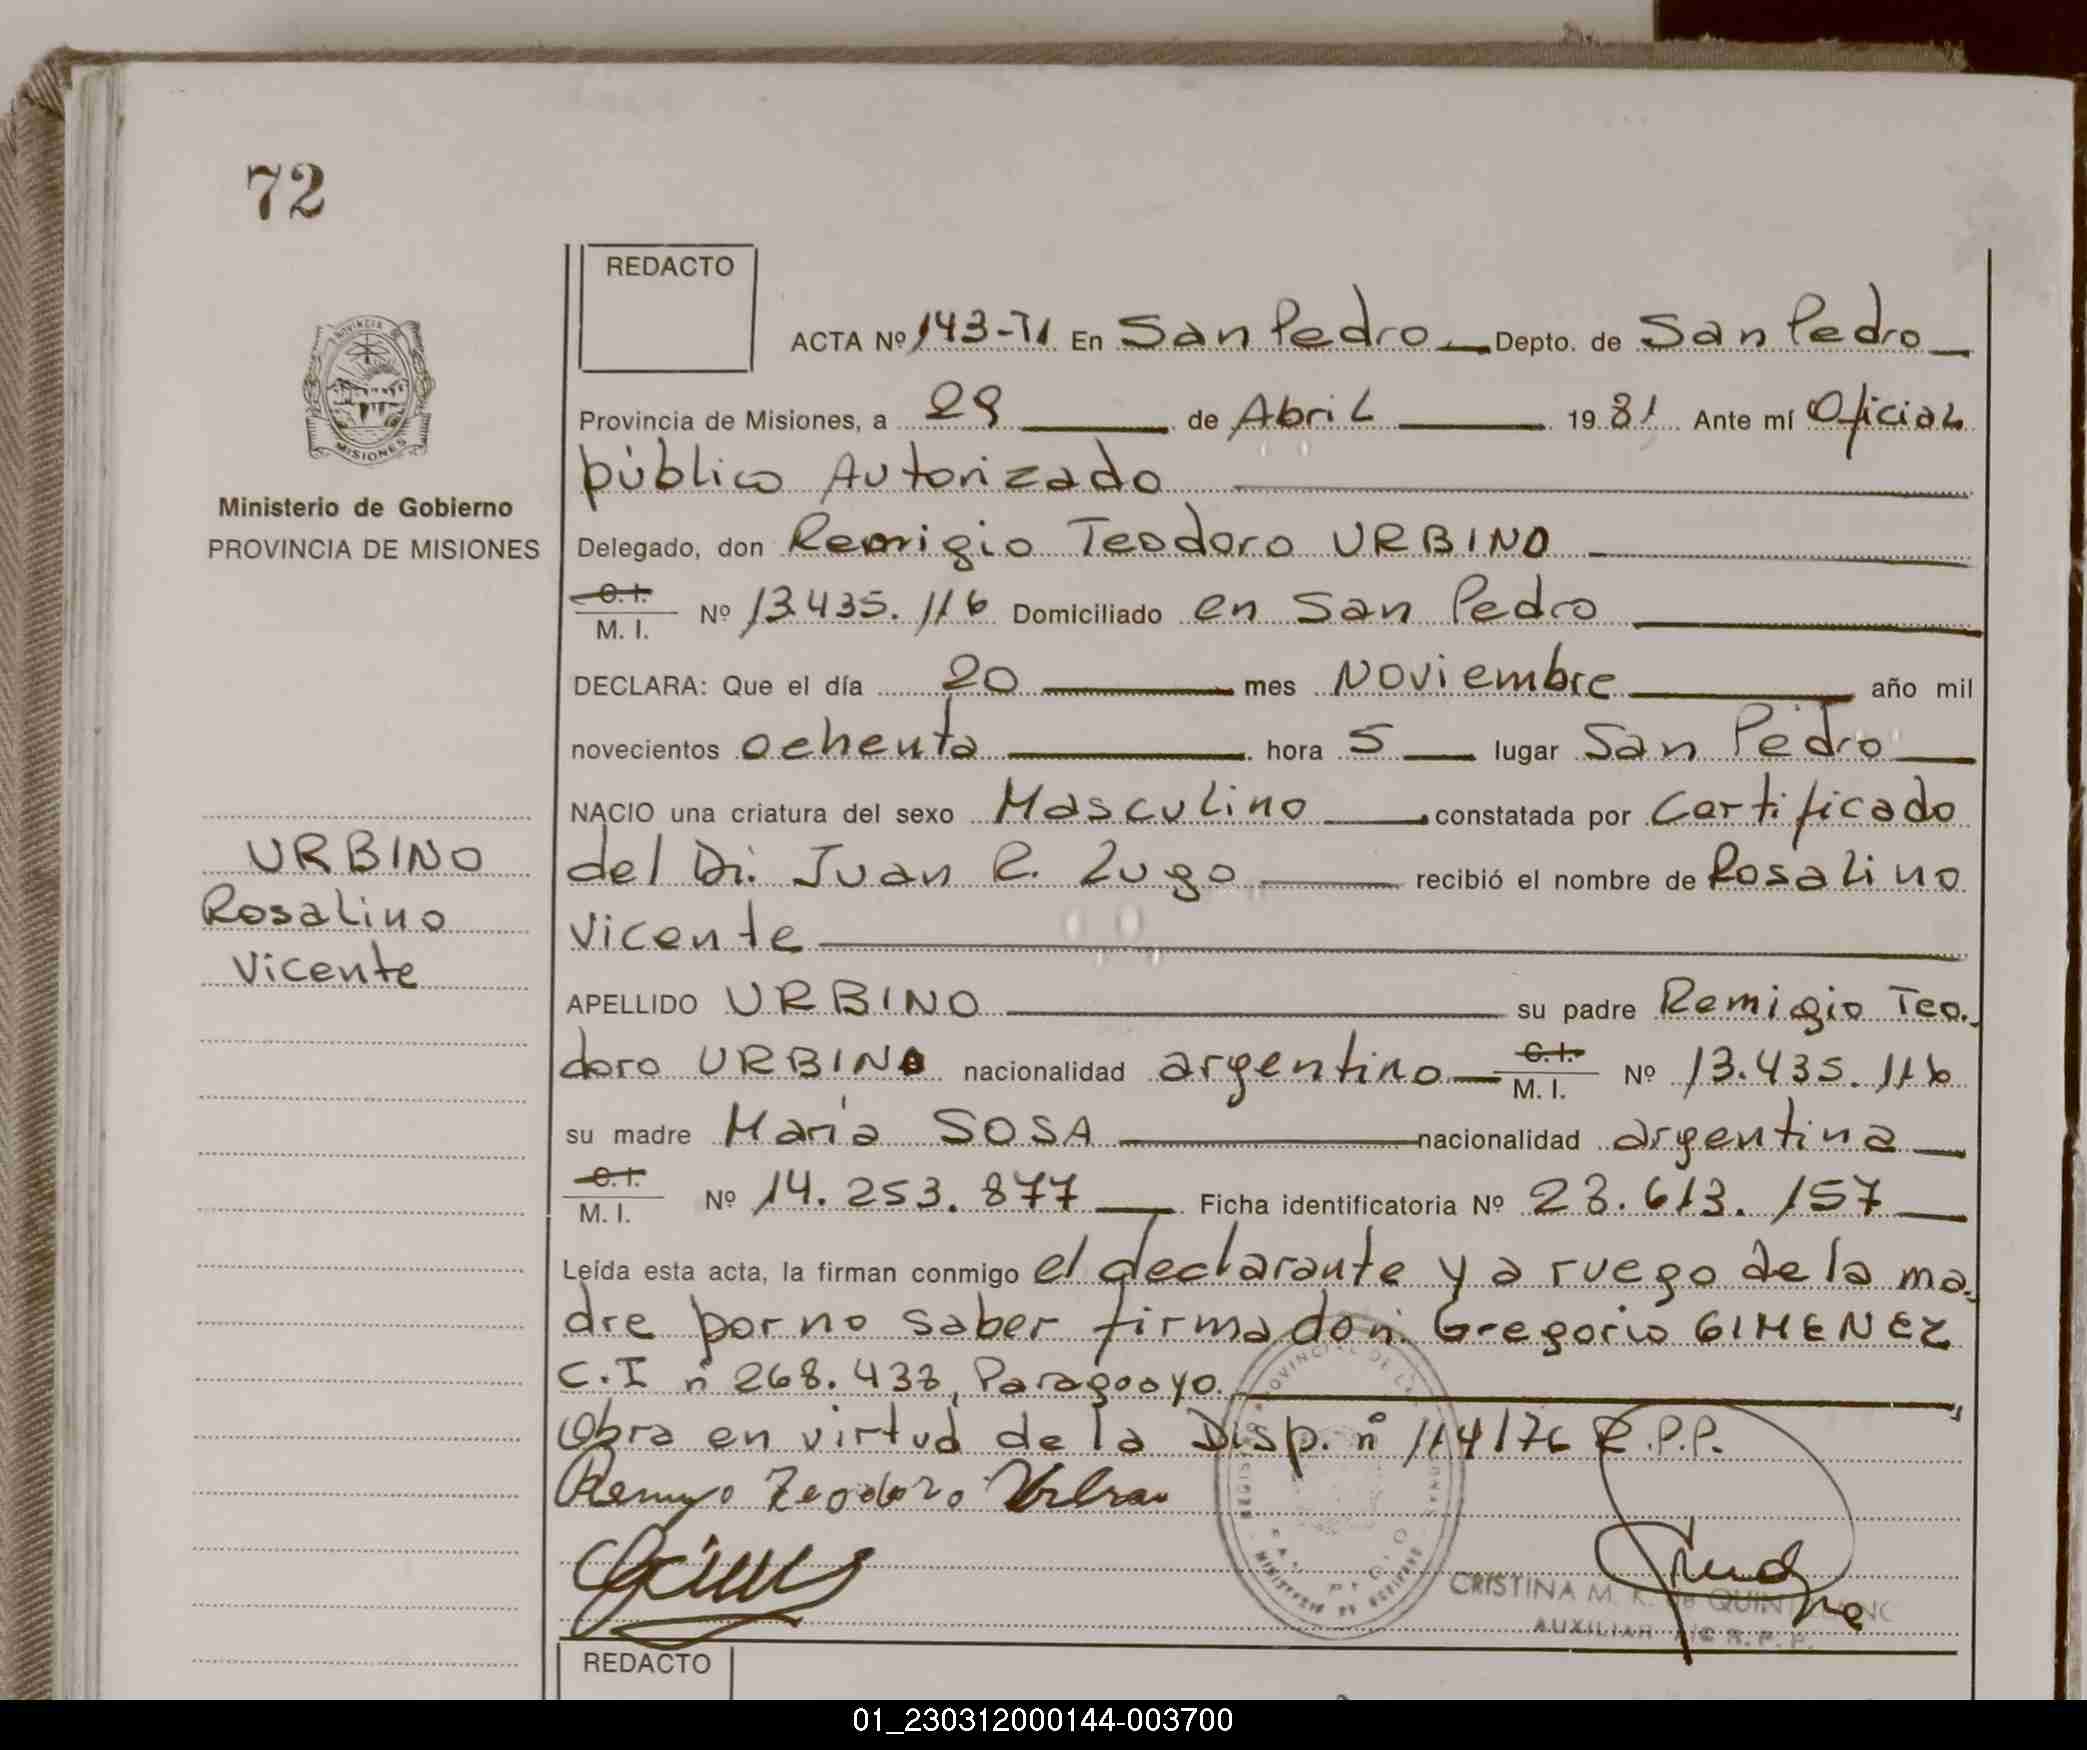 72
REDACTO
ACTA Nº 143-T1 En San Pedro Depto. de San Pedro
Provincia de Misiones, a 29 de Abril 1981 Ante mí Oficial
público Autorizado
Ministerio de Gobierno
PROVINCIA DE MISIONES
Delegado, don Remigio Teodoro URBINO
C.I. M. I. Nº 13.435.116 Domiciliado en San Pedro
DECLARA: Que el día 20 mes Noviembre año mil
novecientos ochenta hora 5 lugar San Pedro
NACIO una criatura del sexo Masculino constatada por Certificado
del Dr. Juan R. Lugo recibió el nombre de Rosalino
Vicente
URBINO
Rosalino
Vicente
APELLIDO URBINO su padre Remigio Teo.
doro URBINO nacionalidad argentino C.I. M. I. Nº 13.435.116
su madre María SOSA nacionalidad argentina
C.I. M. I. Nº 14.253.877 Ficha identificatoria Nº 28.613.157
Leída esta acta, la firman conmigo el declarante y a ruego de la ma
dre por no saber firma don: Gregorio GIMENEZ
C.I nº 268.438, Paraguayo.
Obra en virtud de la Disp. nº 114/76 R.P.P.
Remigio Teodoro Urbino
CRISTINA M. K. de
AUXILIAR R.P.P.
REDACTO
01_230312000144-003700